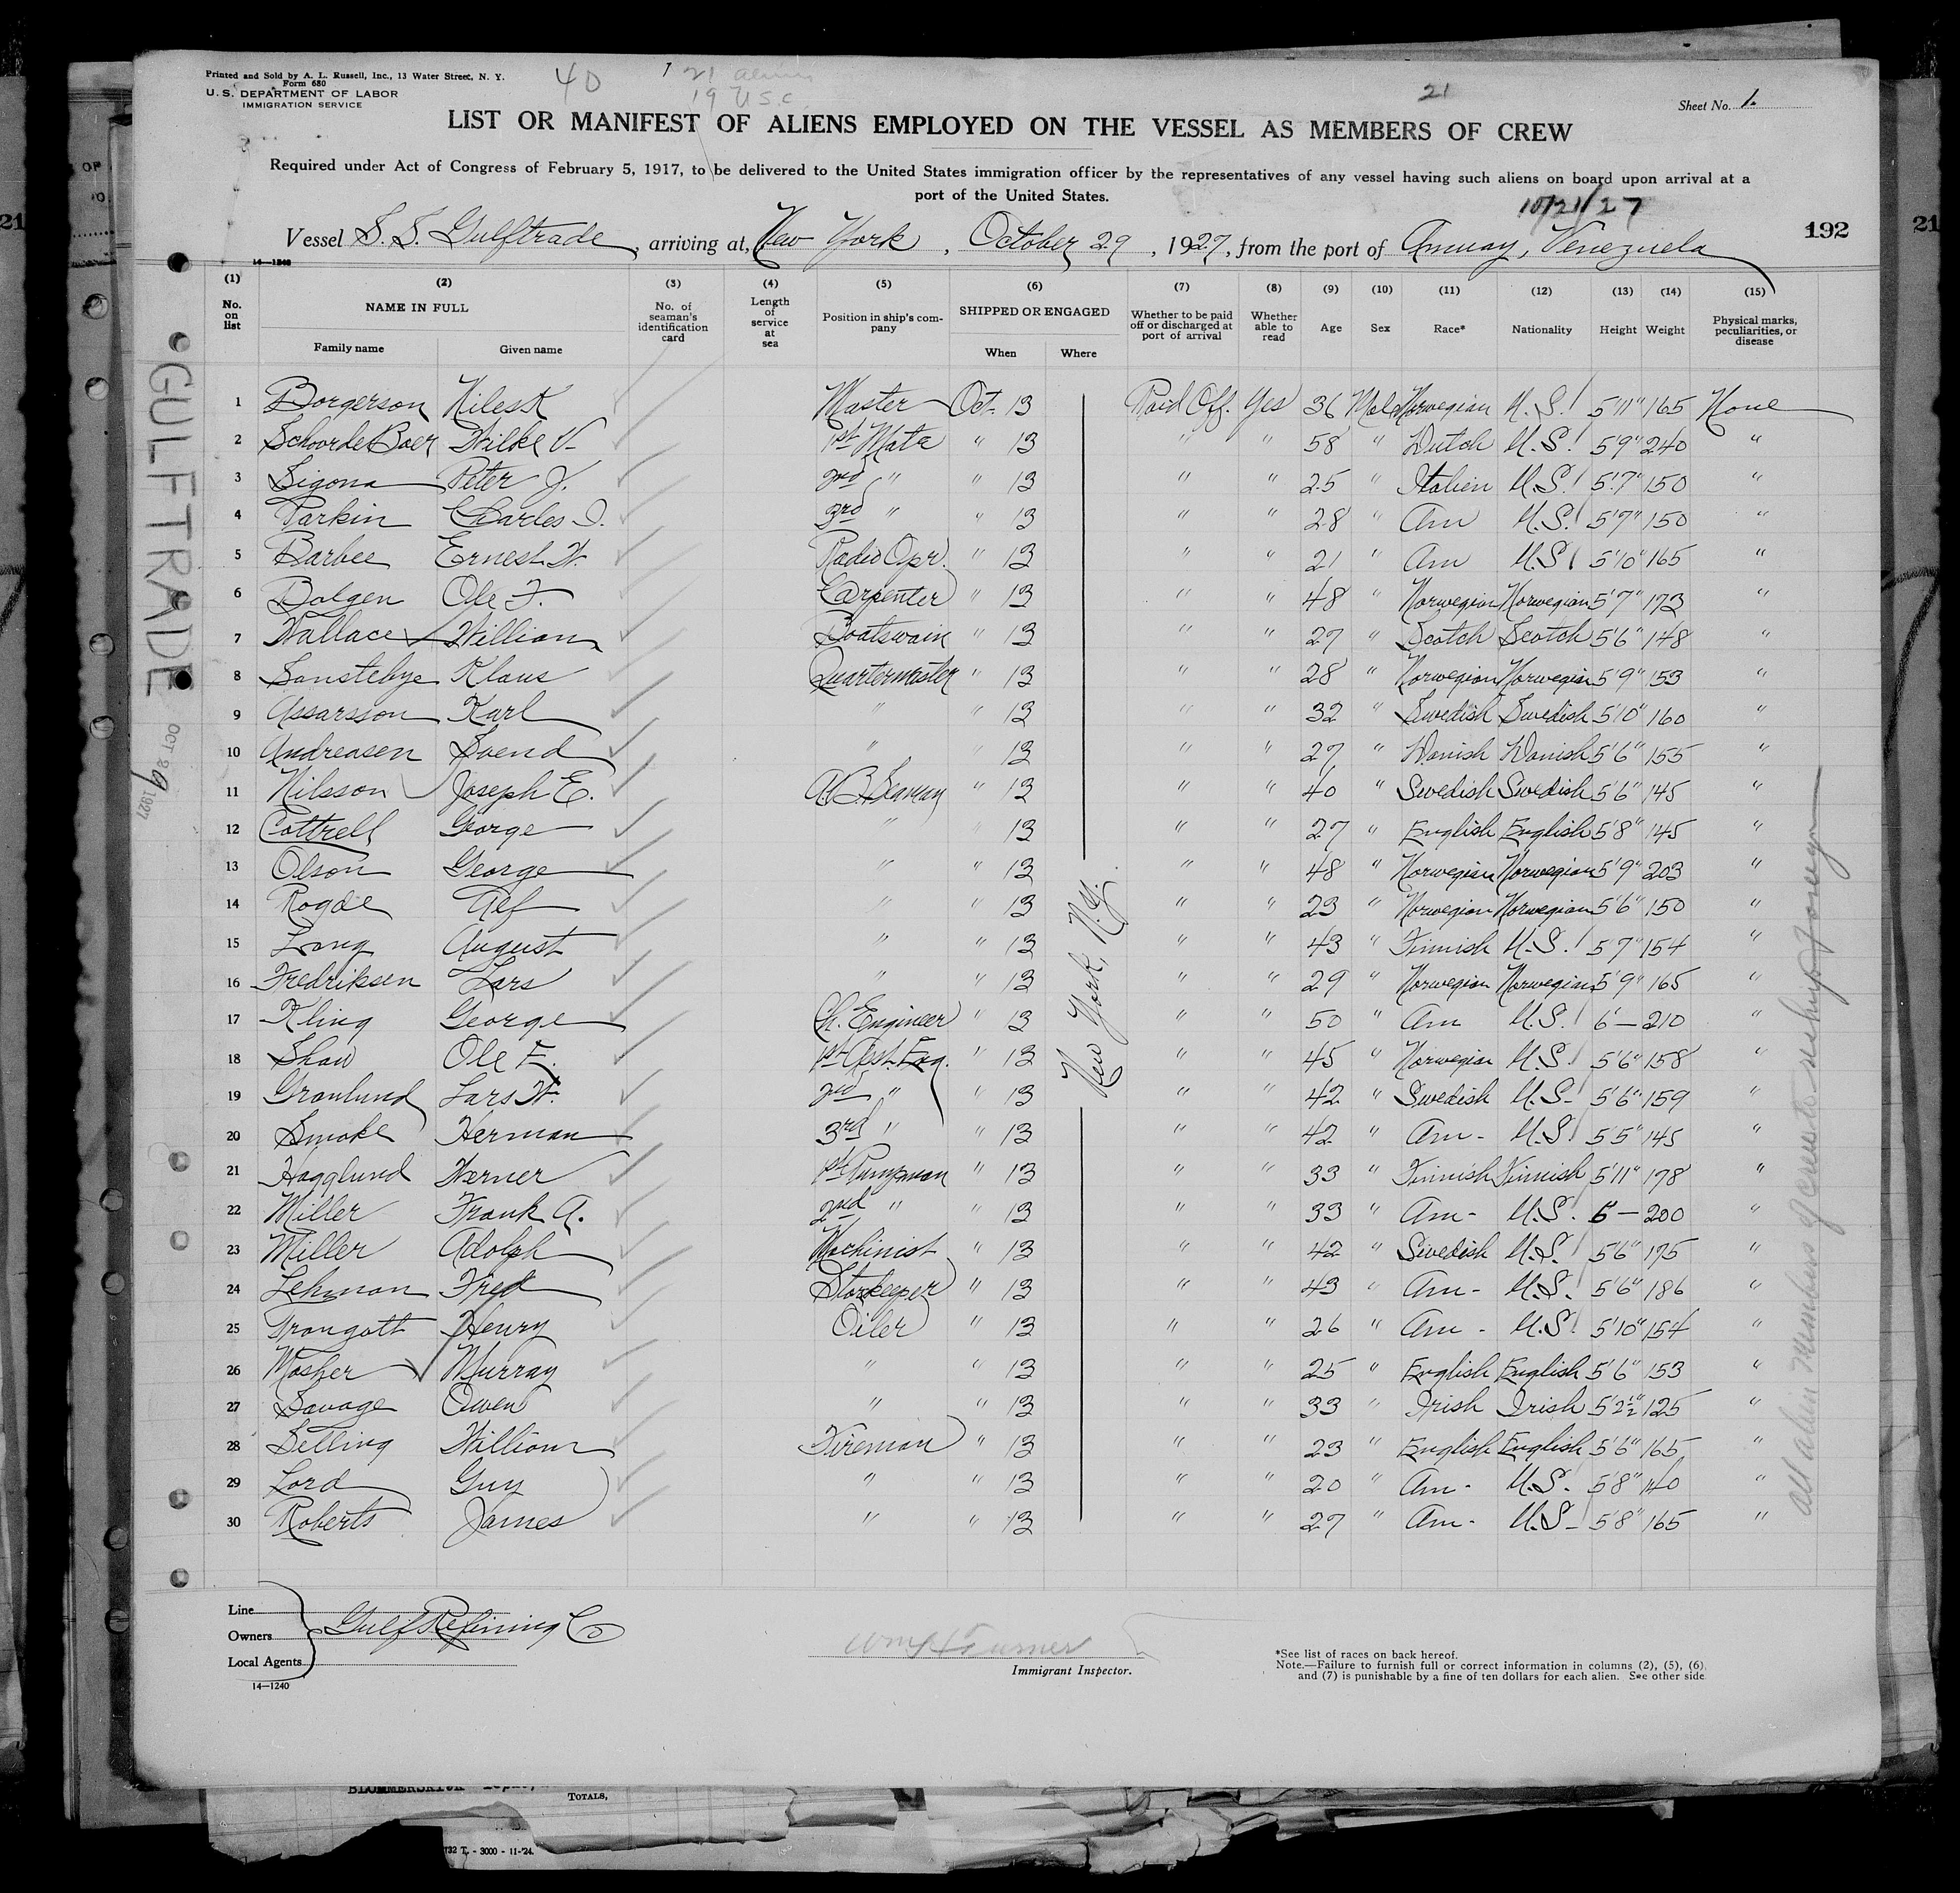 Printed and Sold by A. L. Russell, Inc., 13 Water Street, N. Y.
Form 680
U. S. DEPARTMENT OF LABOR
IMMIGRATION SERVICE
40
21 aliens
19 U.S.C.
21
Sheet No. 1.
LIST OR MANIFEST OF ALIENS EMPLOYED ON THE VESSEL AS MEMBERS OF CREW
Required under Act of Congress of February 5, 1917, to be delivered to the United States immigration officer by the representatives of any vessel having such aliens on board upon arrival at a
port of the United States.
10/21/27
192
Vessel S. S. Gulftrade, arriving at, New York, October 29, 1927, from the port of Amuay, Venezuela
14—1240
(1) (2) (3) (4) (5) (6) (7) (8) (9) (10) (11) (12) (13) (14) (15)
No. on list NAME IN FULL No. of seaman's identification card Length of service at sea Position in ship's company SHIPPED OR ENGAGED Whether to be paid off or discharged at port of arrival Whether able to read Age Sex Race* Nationality Height Weight Physical marks, peculiarities, or disease
Family name Given name When Where
1 Borgerson Niles K Master Oct. 13 Paid Off. Yes 36 Male Norwegian U.S. 5'11" 165 None
2 Schoorde Boer Wilke V. 1st Mate " 13 " " 58 " Dutch U.S. 5'9" 240 "
3 Sigona Peter J. 2nd " " 13 " " 25 " Italien U.S. 5'7" 150 "
4 Parkin Charles I. 3rd " " 13 " " 28 " Am U.S. 5'7" 150 "
5 Barbee Ernest W. Radio Opr. " 13 " " 21 " Am U.S. 5'10" 165 "
6 Bolgen Ole F. Carpenter " 13 " " 48 " Norwegian Norwegian 5'7" 173 "
7 Wallace William Boatswain " 13 " " 27 " Scotch Scotch 5'6" 148 "
8 Sonstebye Klaus Quartermaster " 13 " " 28 " Norwegian Norwegian 5'9" 153 "
9 Assarsson Karl " " 13 " " 32 " Swedish Swedish 5'10" 160 "
10 Andreasen Svend " " 13 " " 27 " Danish Danish 5'6" 155 "
11 Nilsson Joseph E. A.B. Seaman " 13 " " 40 " Swedish Swedish 5'6" 145 "
12 Cottrell George " " 13 " " 27 " English English 5'8" 145 "
13 Olson George " " 13 " " 48 " Norwegian Norwegian 5'9" 203 "
14 Rogde Alf " " 13 " " 23 " Norwegian Norwegian 5'6" 150 "
15 Lang August " " 13 " " 43 " Finnish U.S. 5'7" 154 "
16 Fredriksen Lars " " 13 " " 29 " Norwegian Norwegian 5'9" 165 "
17 Kling George Ch. Engineer " 13 " " 50 " Am U.S. 6— 210 "
18 Shaw Ole E. 1st Asst. Eng. " 13 " " 45 " Norwegian U.S. 5'6" 158 "
19 Granlund Lars W. 2nd " " 13 " " 42 " Swedish U.S. 5'6" 159 "
20 Smoke Herman 3rd " " 13 " " 42 " Am- U.S. 5'5" 145 "
21 Hagglund Werner 1st Pumpman " 13 " " 33 " Finnish Finnish 5'11" 178 "
22 Miller Frank A. 2nd " " 13 " " 33 " Am- U.S. 6— 200 "
23 Miller Adolph Machinist " 13 " " 42 " Swedish U.S. 5'6" 175 "
24 Lehman Fred Storekeeper " 13 " " 43 " Am- U.S. 5'6" 186 "
25 Trangott Henry Oiler " 13 " " 26 " Am- U.S. 5'10" 154 "
26 Mosher Murray " " 13 " " 25 " English English 5'6" 153 "
27 Savage Owen " " 13 " " 33 " Irish Irish 5'2½" 125 "
28 Setling William Fireman " 13 " " 23 " English English 5'6" 165 "
29 Lord Guy " " 13 " " 20 " Am- U.S. 5'8" 140 "
30 Roberts James " " 13 " " 27 " Am- U.S. 5'8" 165 "
New York, N.Y.
all alien members of crew to reship foreign
GULFTRADE
OCT 29 1927
Line
Owners Gulf Refining Co
Local Agents
14—1240
Wm H Turner
Immigrant Inspector.
*See list of races on back hereof.
Note.—Failure to furnish full or correct information in columns (2), (5), (6),
and (7) is punishable by a fine of ten dollars for each alien. See other side
TOTALS,
732 T. - 3000 - 11-'24.
21
21